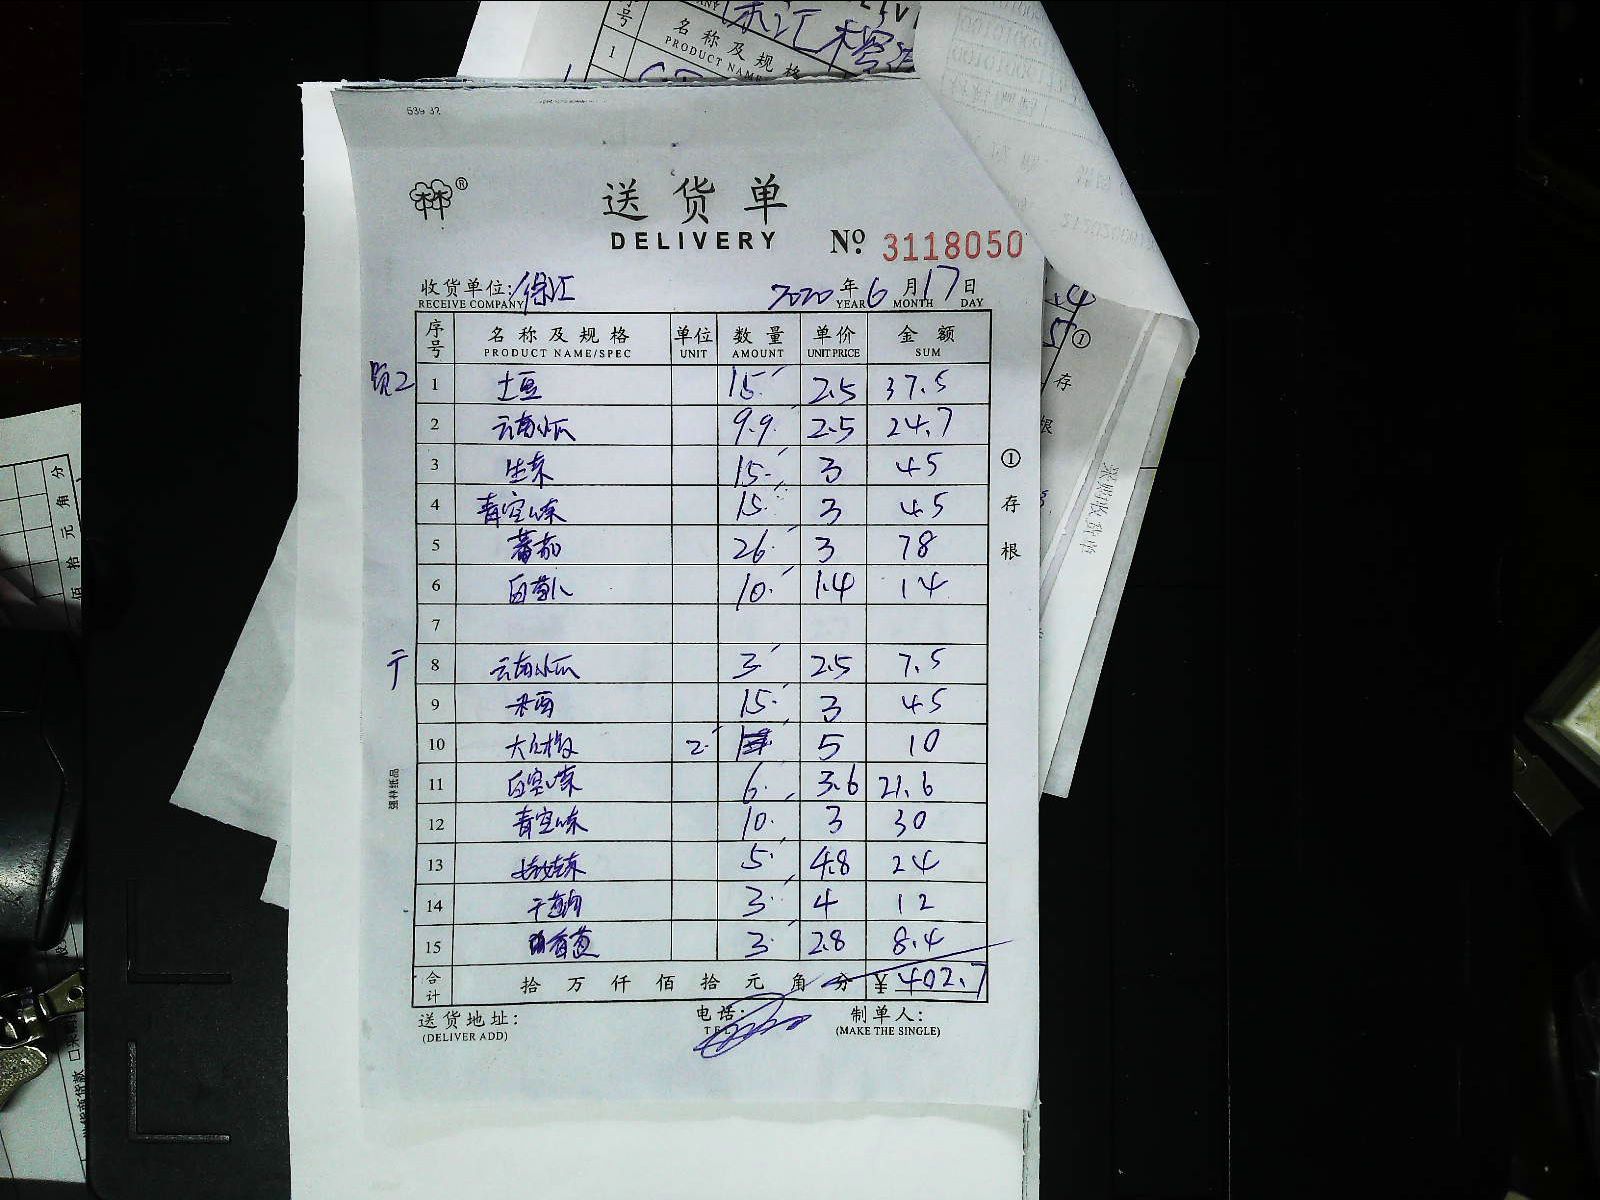 送货单
DELIVERY № 3118050
收货单位: 徐汇 2020年6月17日
RECEIVE COMPANY YEAR MONTH DAY
序号 名称及规格 单位 数量 单价 金额
PRODUCT NAME/SPEC UNIT AMOUNT UNIT PRICE SUM
1 土豆 15. 2.5 37.5
2 云南小瓜 9.9. 2.5 24.7
3 生菜 15. 3 45
4 青空心菜 15. 3 45
5 蕃茄 26. 3 78
6 白萝卜 10. 1.4 14
7
8 云南小瓜 3. 2.5 7.5
9 15. 3 45
10 2. 5 10
11 白空心菜 6. 3.6 21.6
12 青空心菜 10. 3 30
13 5. 4.8 24
14 3. 4 12
15 3. 2.8 8.4
合计 拾 万 仟 佰 拾 元 角 分 ¥ 402.7
送货地址: 电话: 制单人:
(DELIVER ADD) TEL (MAKE THE SINGLE)
① 存根
强林纸品
名称及规格
PRODUCT NAME
采购收货单